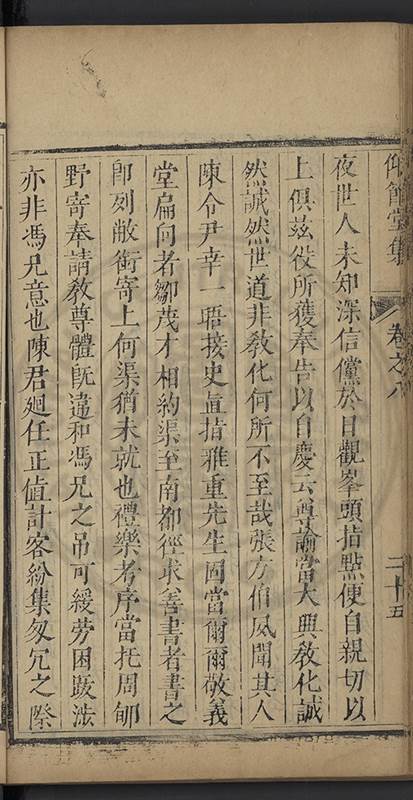 仰節堂集
卷之八
二十五
夜世人未知深信儻於日觀峯頭指點便自親切以
上俱茲役所獲奉告以自慶云尊論當大興教化誠
然誠然世道非教化何所不至哉張方伯風聞其人
陳令尹幸一晤接史直指雅重先生固當爾爾敬義
堂扁向者鄒茂才相約渠至南都徑求善書者書之
即列敝銜寄上何渠猶未就也禮樂考序當托周郇
野寄奉請教尊體既違和馮兄之吊可緩勞困跋涉
亦非馮兄意也陳君廻任正值計客紛集匆冗之際